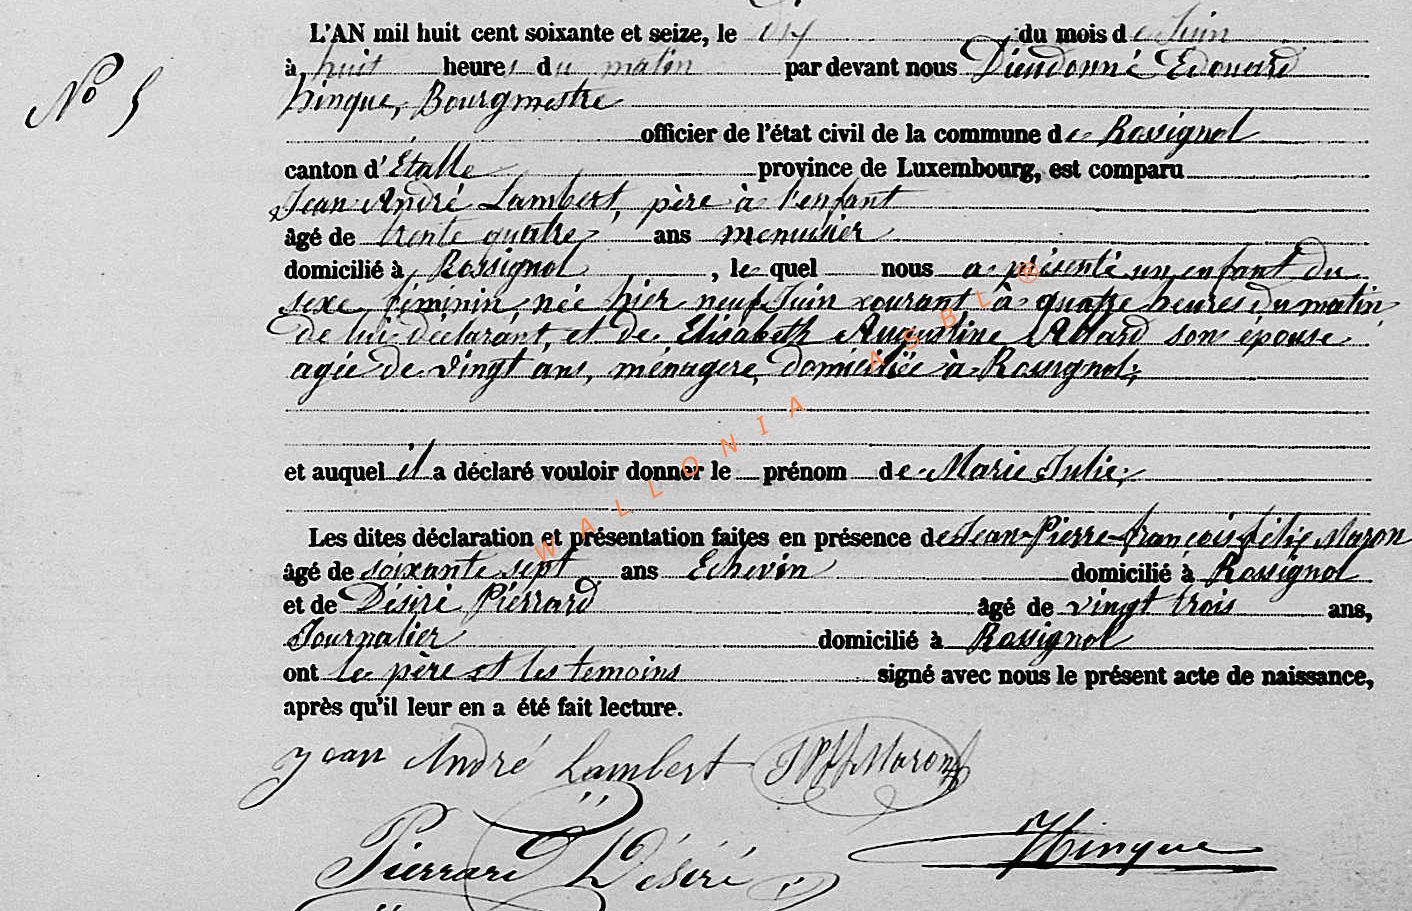 L'AN mil huit cent soixante et seize, le dix du mois de Juin
à huit heures du matin par devant nous Dieudonné Edouard
hinque, Bourgmestre
officier de l'état civil de la commune de Rossignol
canton d'Étalle province de Luxembourg, est comparu
Jean André Lambert, père à l'enfant
âgé de trente quatre ans menuisier
domicilié à Rossignol, le quel nous a présenté un enfant du
sexe féminin, née hier neuf Juin courant à quatre heures du matin
de lui déclarant, et de Elisabeth Augustine son épouse
agée de vingt ans, ménagère, domiciliée à Rossignol;
et auquel il a déclaré vouloir donner le prénom de Marie Julie;
Les dites déclaration et présentation faites en présence de Jean-Pierre-françois félix Maron
âgé de soixante sept ans Echevin domicilié à Rossignol
et de Désiré Pierrard âgé de vingt trois ans,
Journalier domicilié à Rossignol
ont le père et les temoins signé avec nous le présent acte de naissance,
après qu'il leur en a été fait lecture.
No 5
WALLONIA ASBL ®
Jean André Lambert JPff Maron
Pierrard Désiré
Hinque